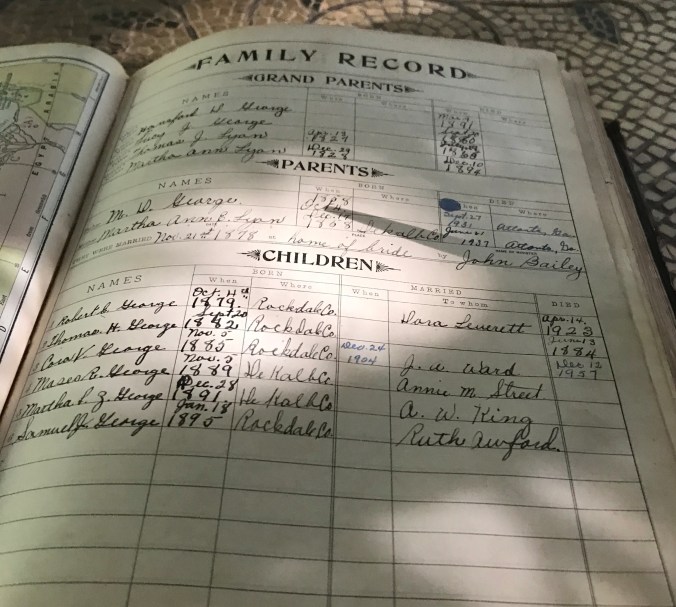 FAMILY RECORD
GRAND PARENTS
NAMES BORN DIED
When Where When Where
D. George
George
Thomas J. Lyon
Martha Ann Lyon Dec. 29 1828 Dec. 10 1896
PARENTS
NAMES BORN DIED
When Where When Where
M. D. George Sept. 27 1931 Atlanta Ga
Martha Ann E. Lyon 1858 Dekalb Co 1937 Atlanta, Ga
WERE MARRIED Nov. 21st 1878 at home of bride by John Bailey
CHILDREN
NAMES BORN MARRIED DIED
When Where When To whom
Robert George Oct. 4th 1879 Rockdale Co. Dora Leverett Apr. 14, 1923
Thomas. H. George Sept 20 1882 Rockdale Co. June 13 1884
Cora V. George Nov. 5 1885 Rockdale Co. Dec. 24 1904 J. W. Ward Dec 12 1957
George Nov. 5 1889 DeKalb Co Annie M. Street
Martha L. Z. George Dec. 28 1891 DeKalb Co A. W. King
Samuel George Jan. 18 1895 Rockdale Co. Ruth Awford.
EGYPT
ARABIA